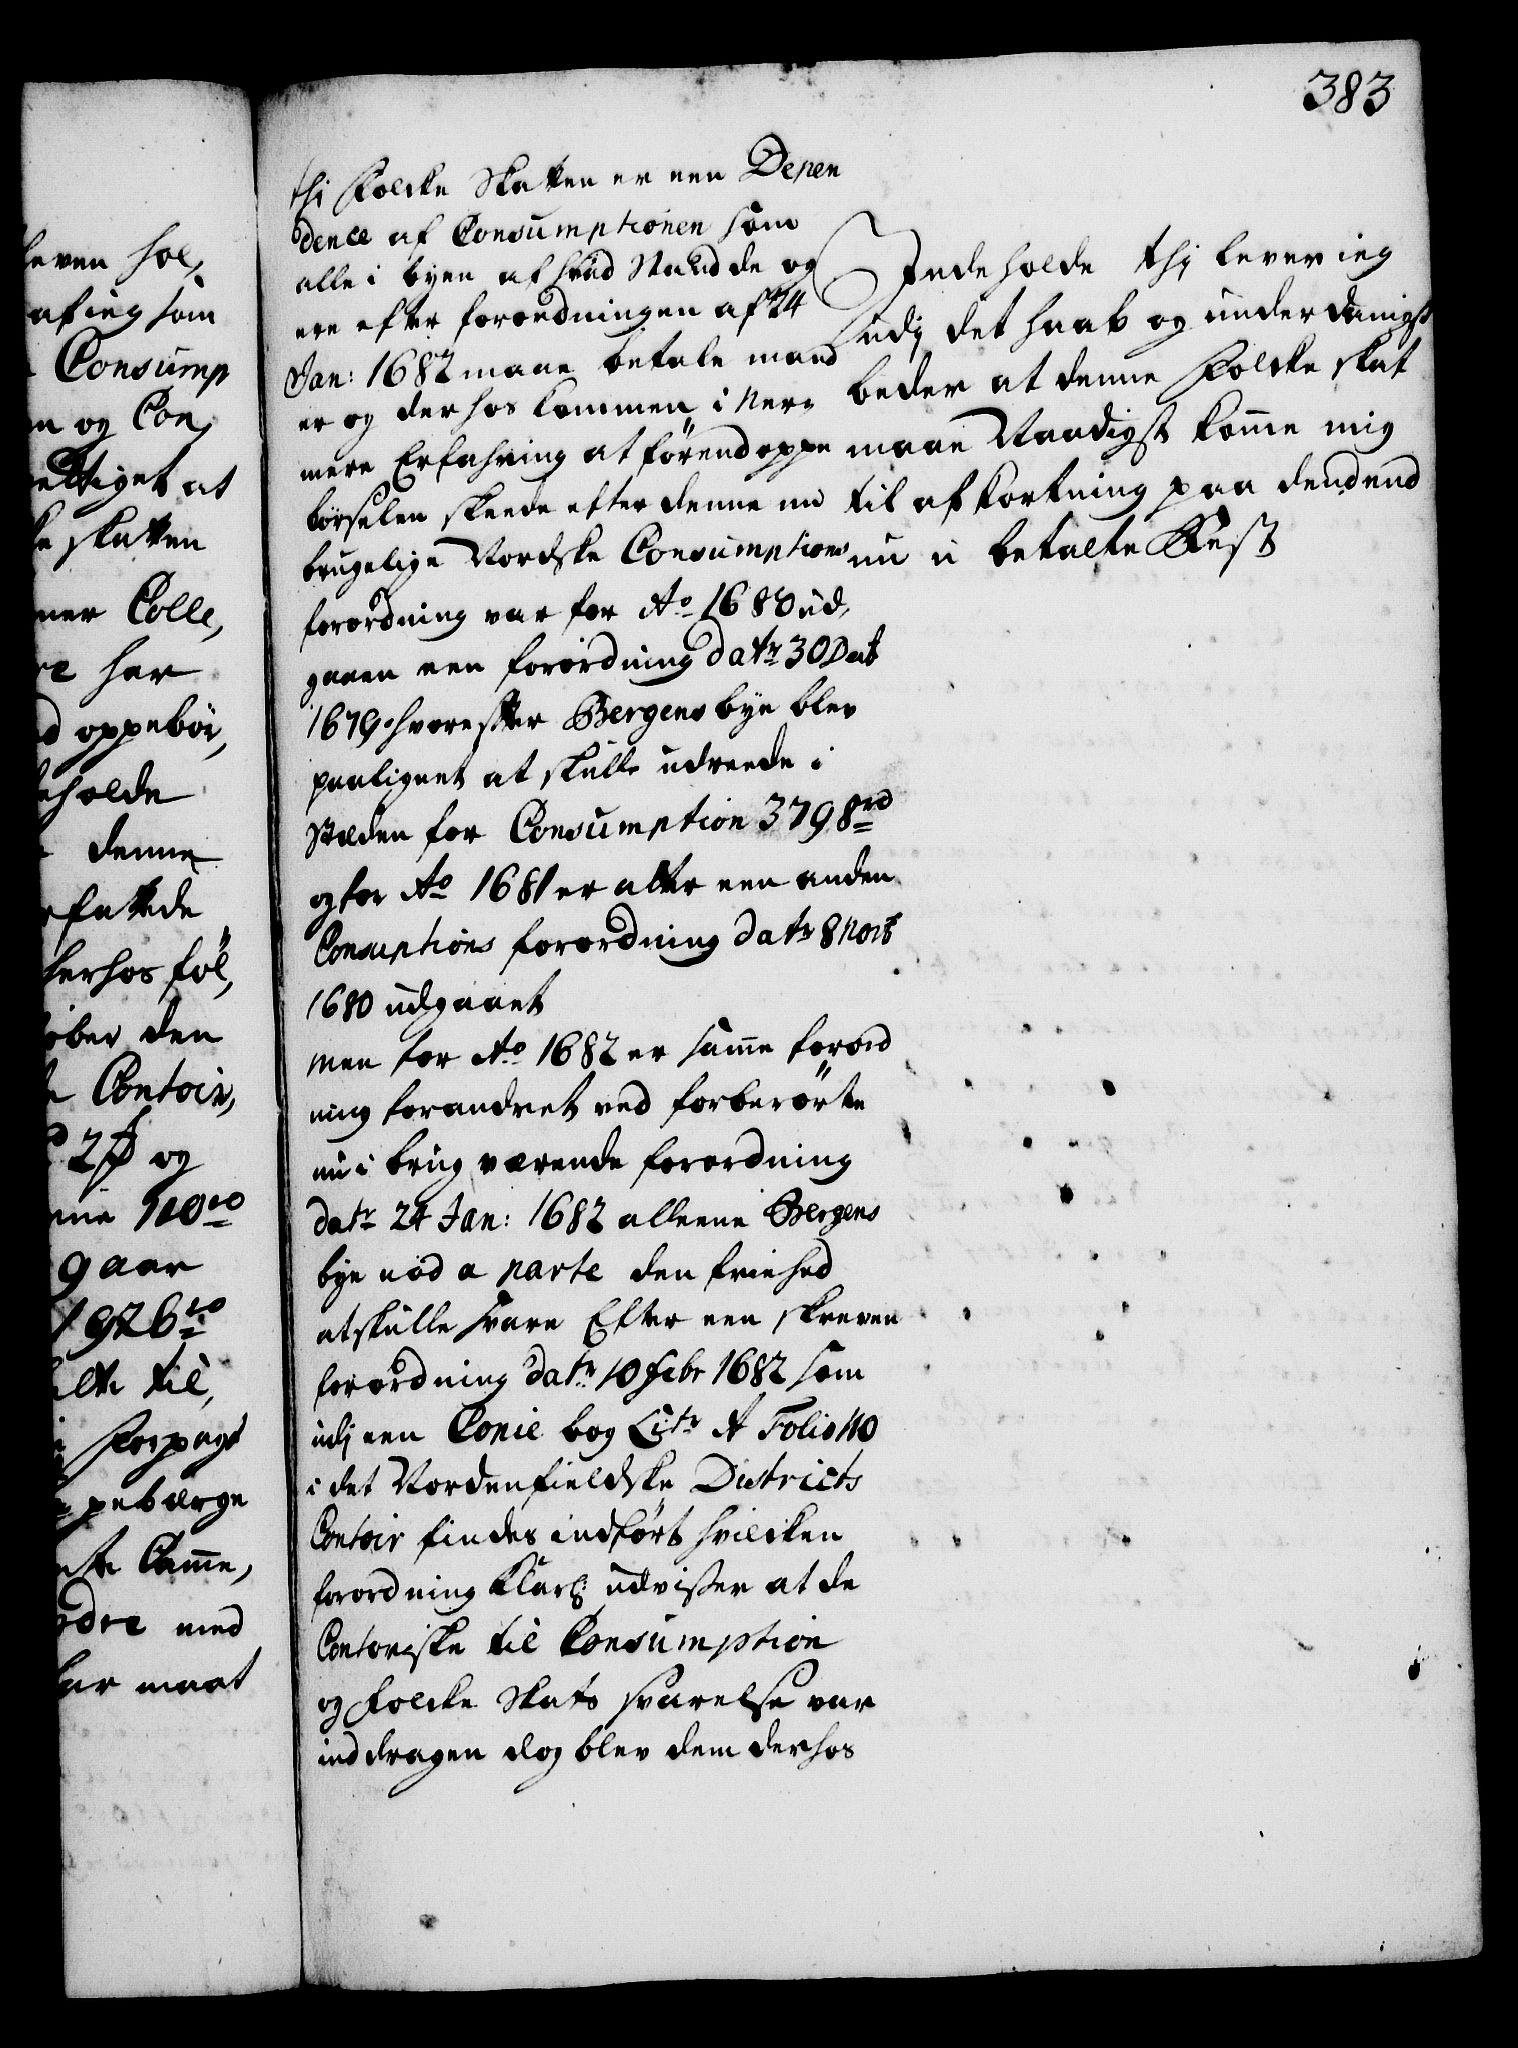 383
thi Folcke Skatten er een Depen
dence af Consumptionen som
alle i byen af hvad Stand de og
ere efter forordningen af 24
Jan: 1682 maae betale mand
er og derhos kommen i ner¬
mere Erfahring at förend oppe
börselen skeede efter denne nu
brugelige Nordske Consumptions
forordning var for Ao 1680 ud,
gaaen een forordning datr 30 Dect
1679. hvorefter Bergens bye blev
paalignet at skulle udreede i
Steden for Consumption 3798 rd
og for Ao 1681 er atter een anden
Consuptions forordning datr 8 Novb
1680 udgaaet
men for Ao 1682 er samme forord
ning forandret ved forberörte
nu i brug værende forordning
datr 24 Jan: 1682 alleene Bergens
bye nöd a parte den friehed
at skulle svare Efter een skreven
forordning datr 10 Febr 1682 som
udj een Copie bog Litr A Folio 110
i det Nordenfieldske Districts
Contoir findes indfört hvilcken
forordning Klarl: udviser at de
Contoriske til Consumption
og Folcke Skats svarelse var
inddragen dog blev dem derhos
Indeholde thj lever ieg
udj det haab og underdanigst
beder at denne Folcke skat
maae Naadigst komme mig
til afkortning paa dend end
nu u betalte Rest
leven hol,
af ieg som
Consump
n og Con,
rettiget at
ke skatten
mer Colle,
re har
d oppebör,
eholde
denne
rfattede
derhos föl,
over den
Contoir,
2 ß og
mie 110 rd
9 aar
1926 rd
til,
Forpagt
pebærge
ste Camme,
ordre med
har maat